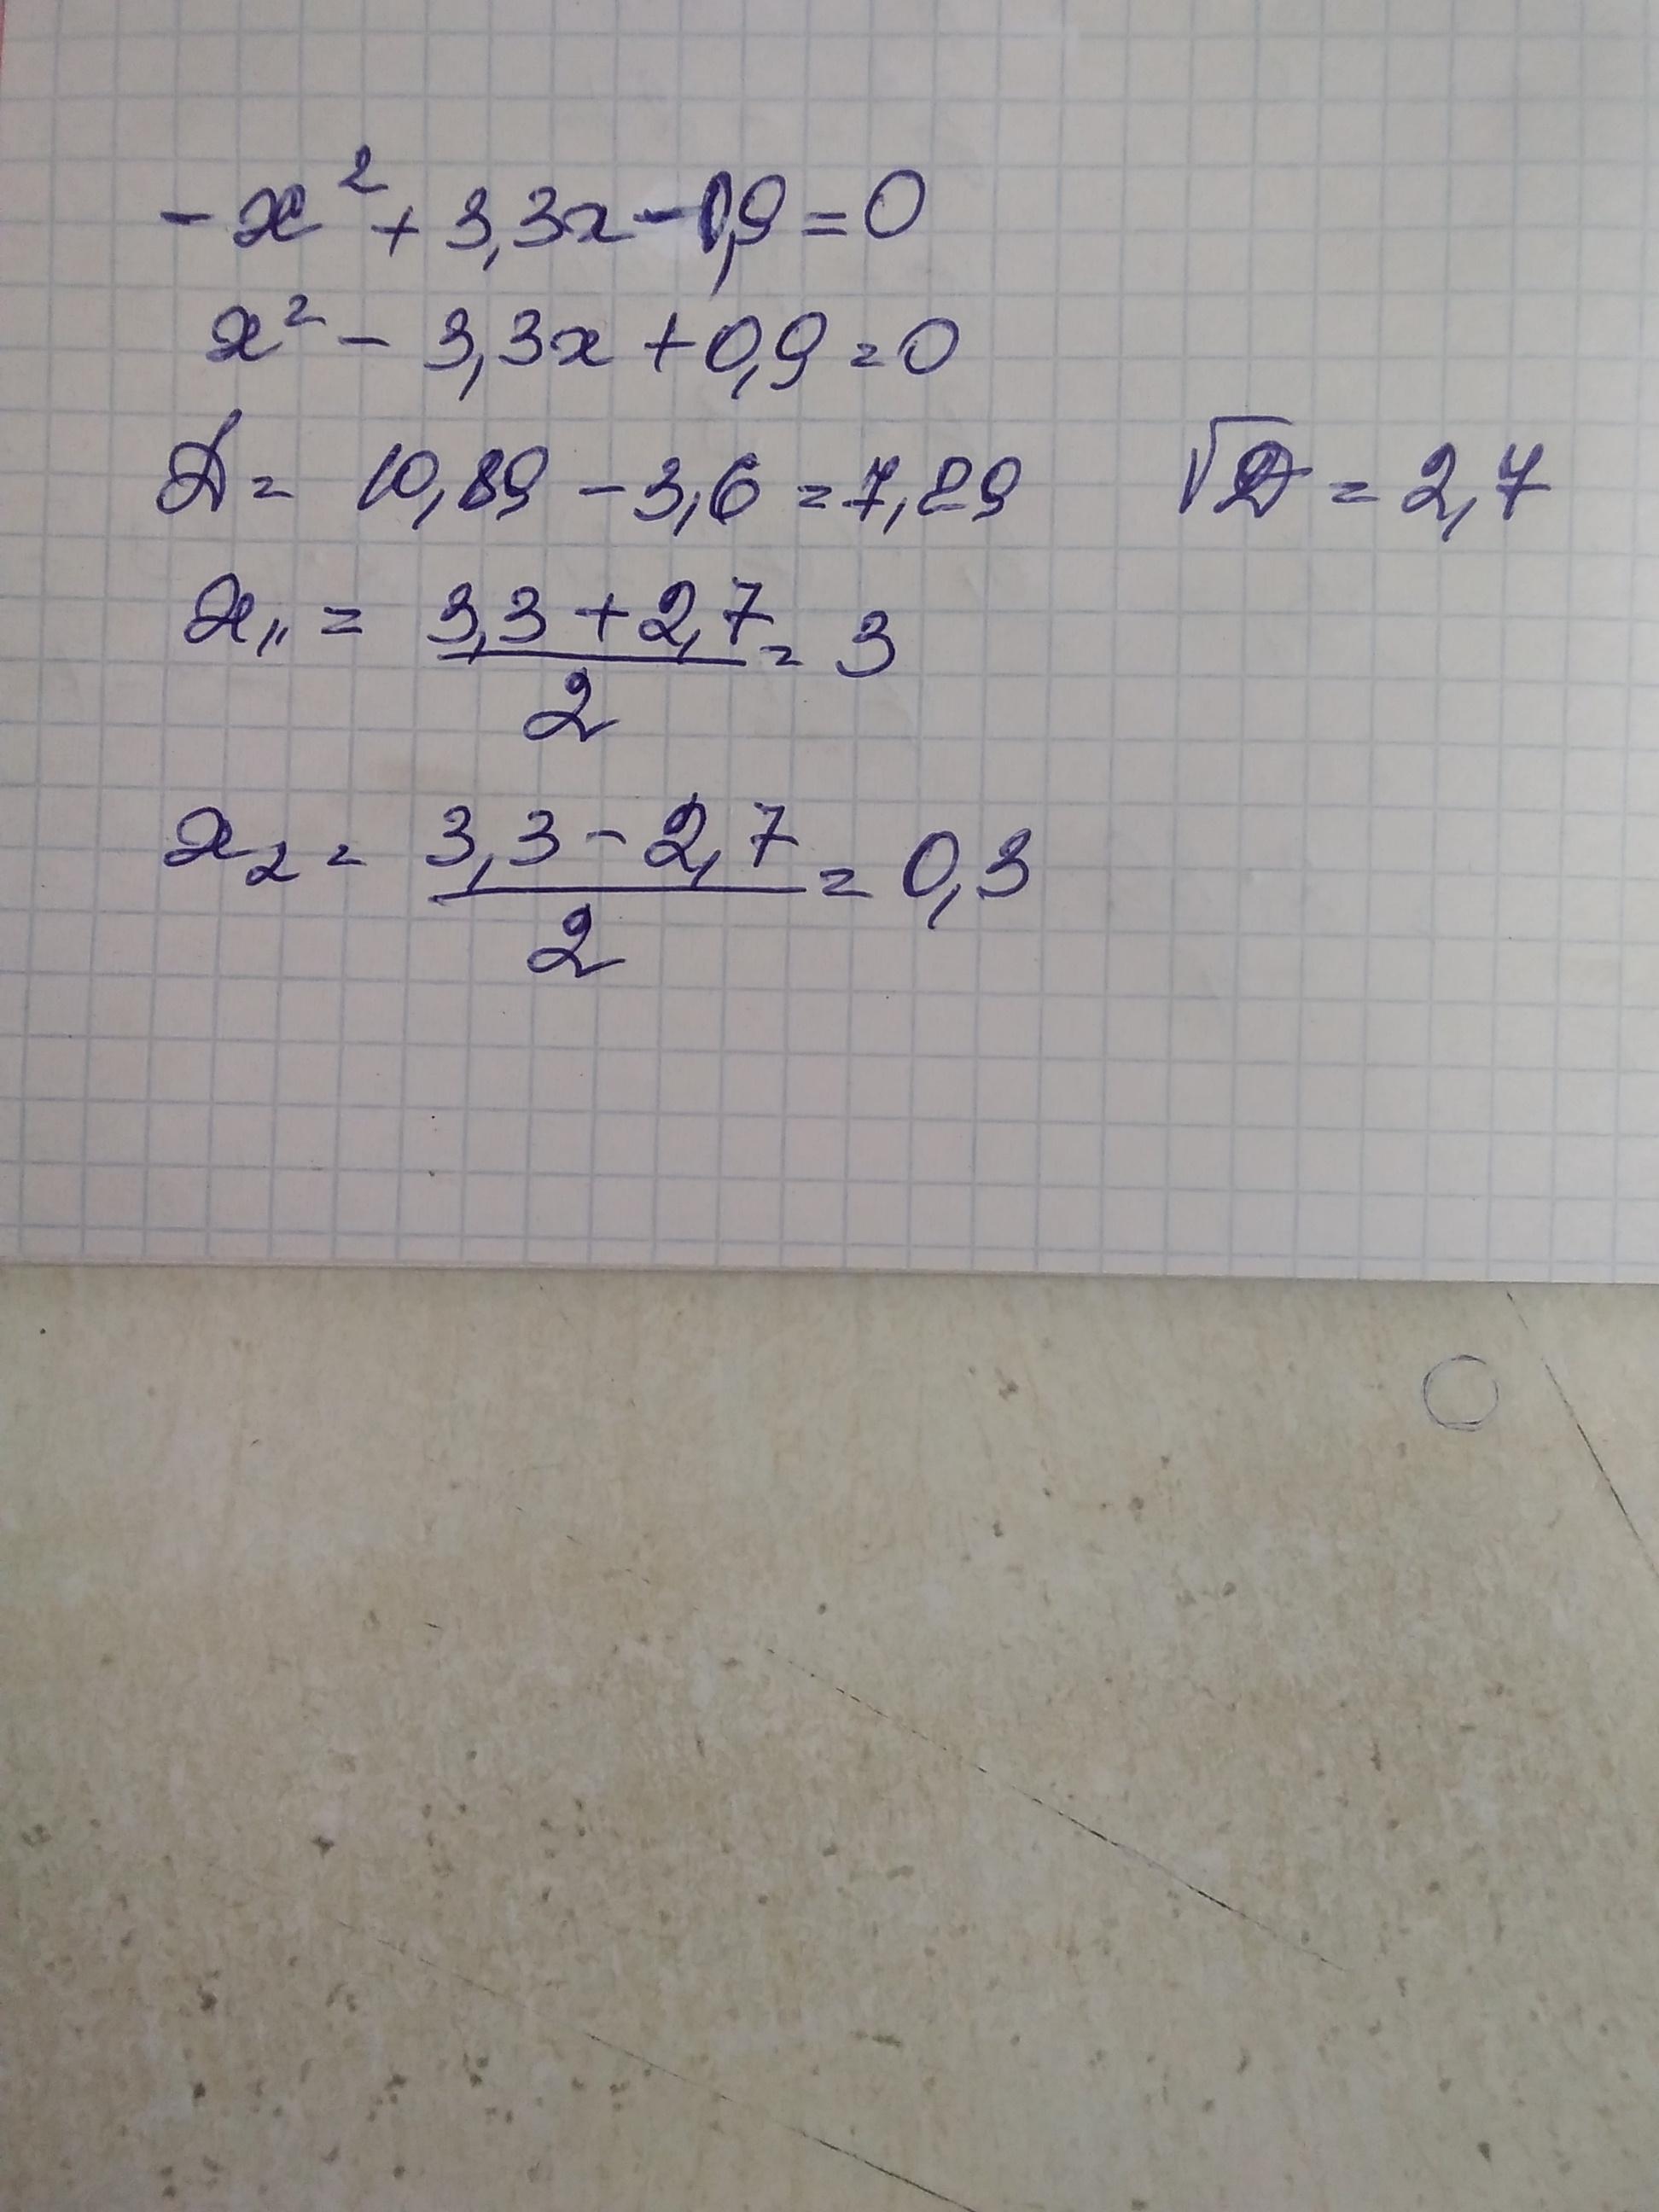 -x² + 3,3x - 0,9 = 0
x² - 3,3x + 0,9 = 0
D = 10,89 - 3,6 = 7,29 √D = 2,7
x₁ = (3,3 + 2,7)/2 = 3
x₂ = (3,3 - 2,7)/2 = 0,3